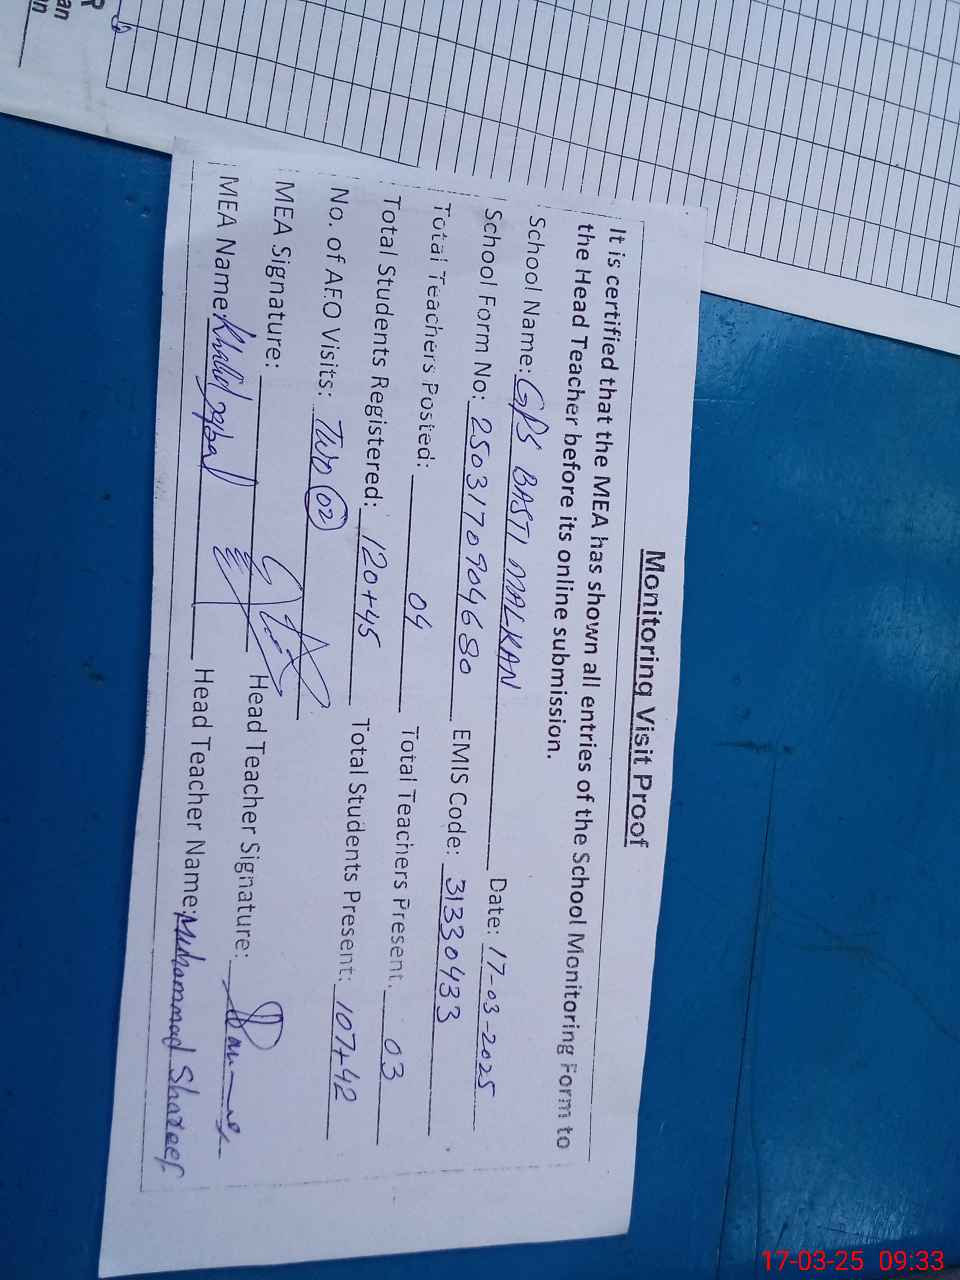 Monitoring Visit Proof
It is certified that the MEA has shown all entries of the School Monitoring Form to
the Head Teacher before its online submission.
School Name: GPS BASTI MALKAN Date: 17-03-2025
School Form No: 2503170904680 EMIS Code: 31330433
Total Teachers Posted: 04 Total Teachers Present: 03
Total Students Registered: 120+45 Total Students Present: 107+42
No. of AEO Visits: Two 02
MEA Signature: Head Teacher Signature:
MEA Name: Khalid Iqbal Head Teacher Name: Muhammad Shareef
17-03-25 09:33